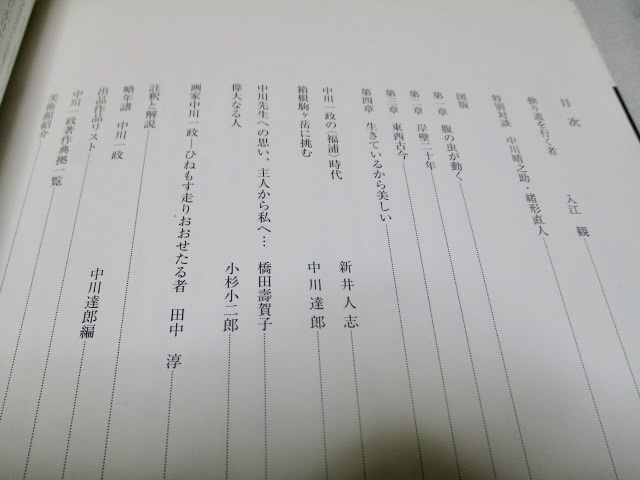 目次
独り道を行く者　入江　観
特別対談　中川晴之助・緒形直人
図版
第一章　腹の虫が動く
第二章　岸壁二十年
第三章　東西古今
第四章　生きているから美しい
中川一政の〈福浦〉時代　新井人志
箱根駒ヶ岳に挑む　中川達郎
中川先生への思い、主人から私へ…　橋田壽賀子
偉大なる人　小杉小二郎
画家中川一政―ひねもす走りおおせたる者　田中　淳
註釈と解説
略年譜　中川一政
出品作品リスト　中川達郎編
中川一政著作典拠一覧
美術館紹介